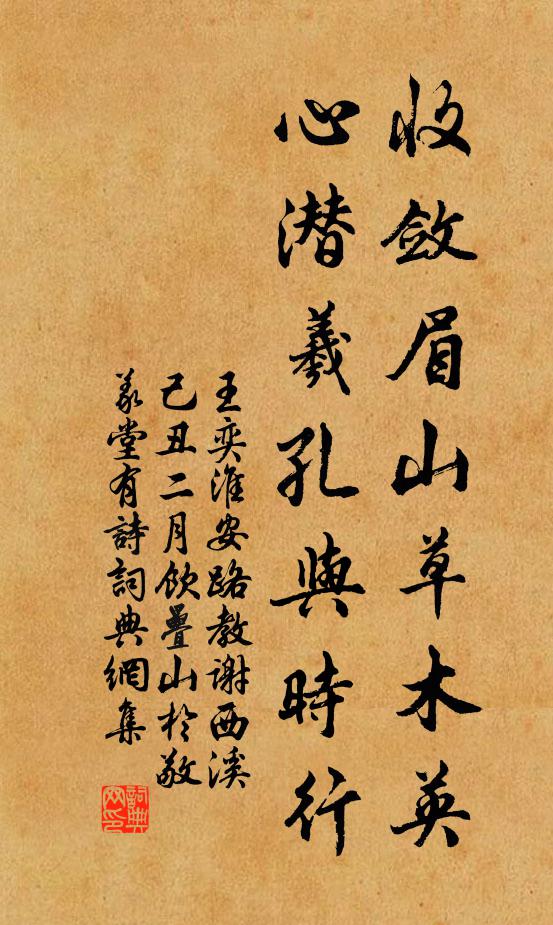 收斂眉山草木英
心潜羲孔與時行
王奕淮安路教謝西溪
己丑二月飲疊山於敬
義堂有詩詞典網集
詞典網印